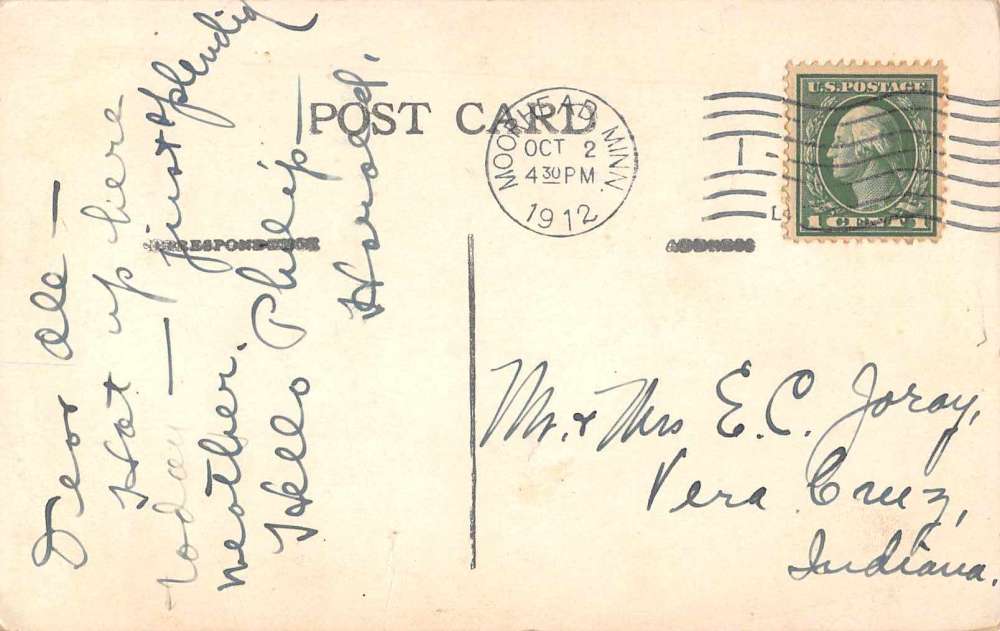 POST CARD
CORRESPONDENCE
ADDRESS
MOORHEAD MINN.
OCT 2
4 30 PM
1912
U.S. POSTAGE
1 CENT 1
Dear all —
Hot up here
today — just splendid
weather.
Hello Philip —
Harold.
Mr. & Mrs E. C. Joray,
Vera Cruz,
Indiana.